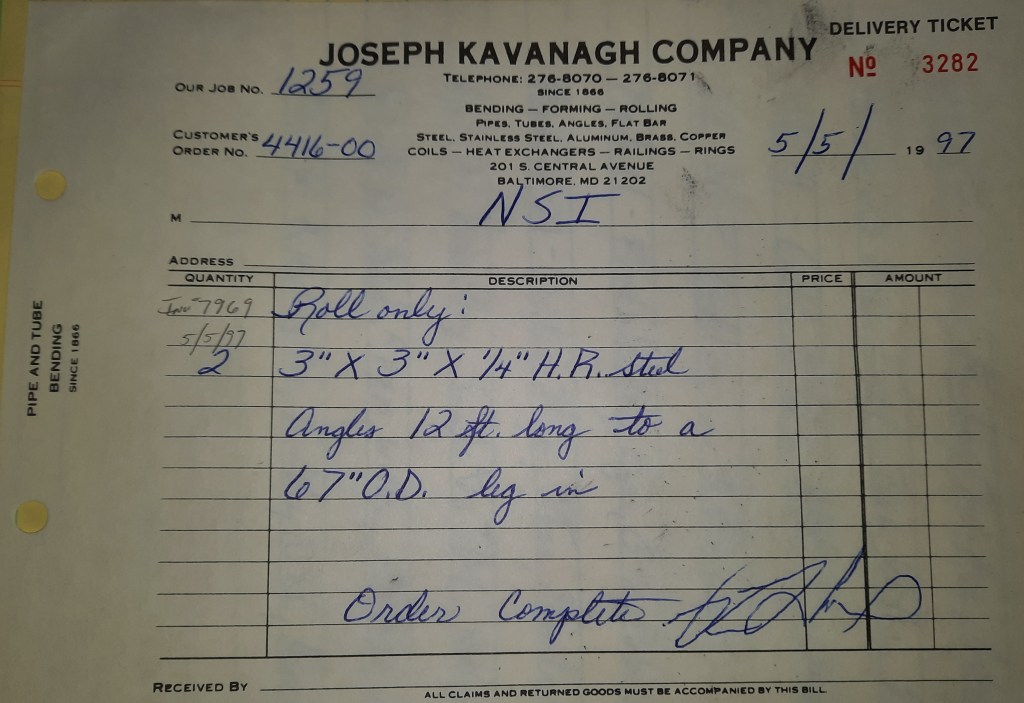 DELIVERY TICKET
JOSEPH KAVANAGH COMPANY
Nº 3282
TELEPHONE: 276-8070 — 276-8071
OUR JOB NO. 1259
SINCE 1866
BENDING — FORMING — ROLLING
PIPES, TUBES, ANGLES, FLAT BAR
STEEL, STAINLESS STEEL, ALUMINUM, BRASS, COPPER
CUSTOMER'S
ORDER NO. 4416-00
COILS — HEAT EXCHANGERS — RAILINGS — RINGS
5/5/ 19 97
201 S. CENTRAL AVENUE
BALTIMORE, MD 21202
M NSI
ADDRESS
QUANTITY DESCRIPTION PRICE AMOUNT
Inv 7969 Roll only:
5/5/97
2 3" X 3" X 1/4" H.R. Steel
Angles 12 ft. long to a
67" O.D. leg in
Order Complete
RECEIVED BY
ALL CLAIMS AND RETURNED GOODS MUST BE ACCOMPANIED BY THIS BILL
PIPE AND TUBE
BENDING
SINCE 1866